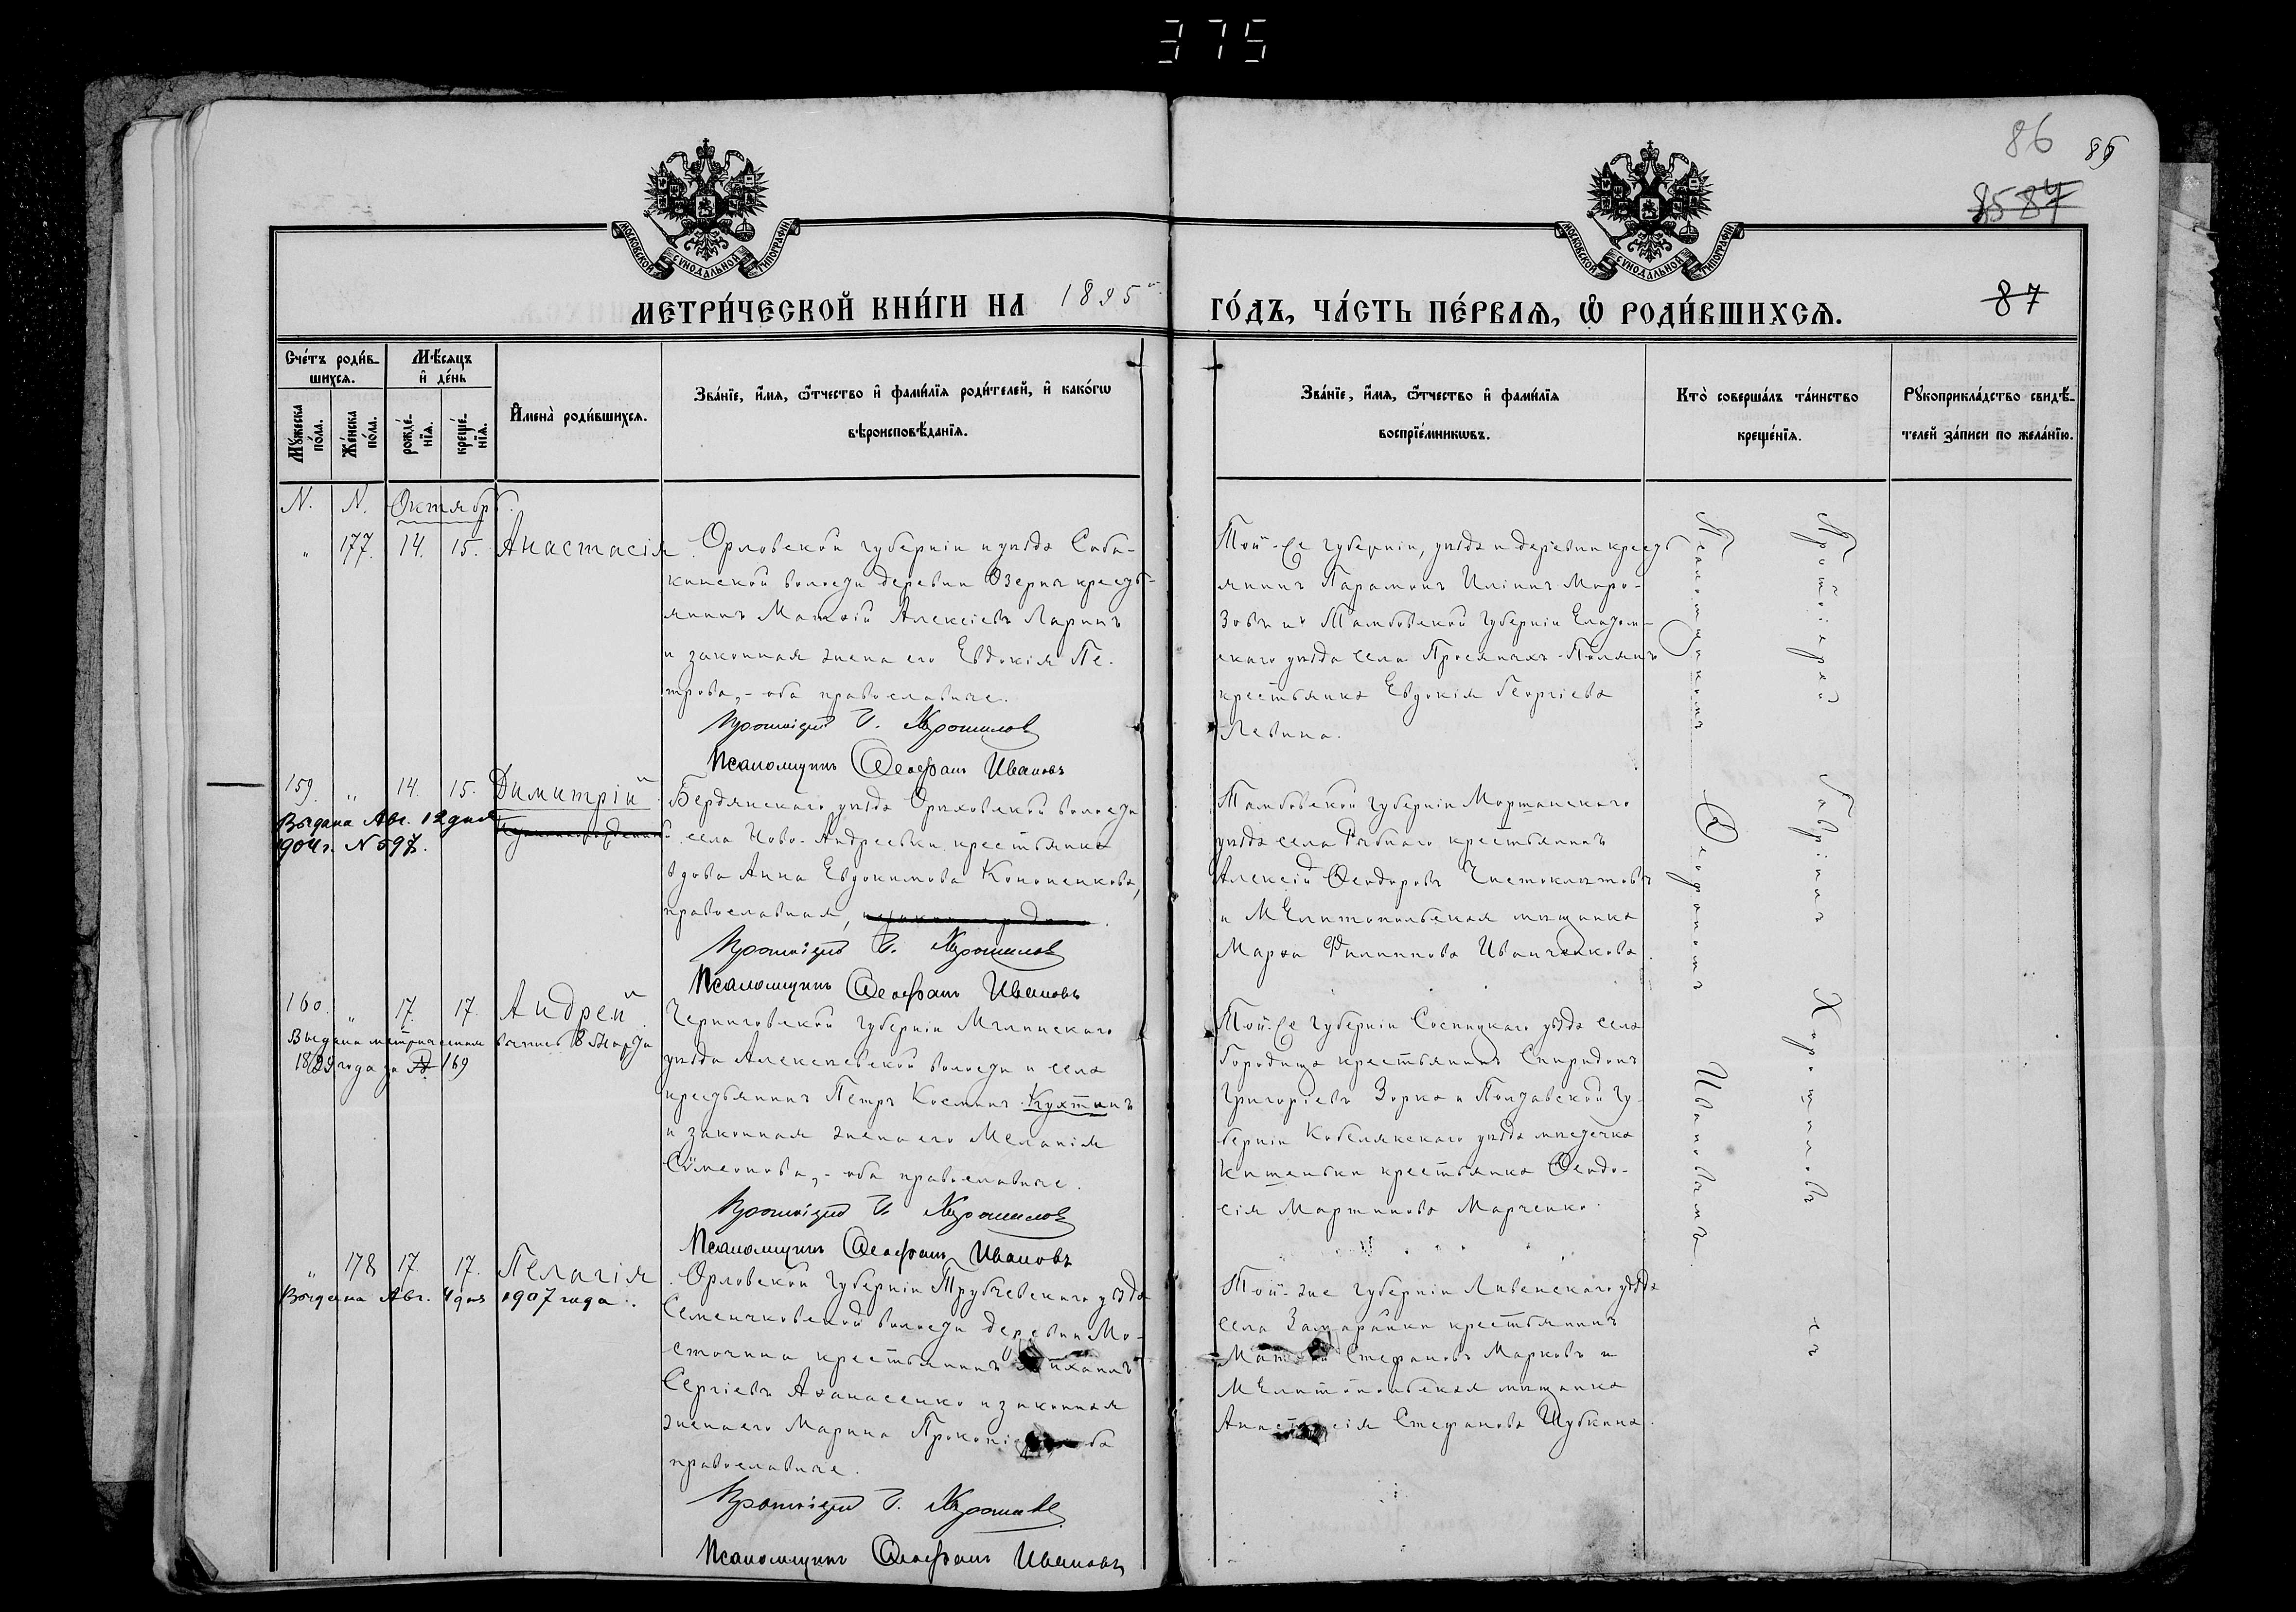 375
86
86
85 84
МОСКОВСКОЙ СѴНОДАЛЬНОЙ ТИПОГРАФІИ
МОСКОВСКОЙ СѴНОДАЛЬНОЙ ТИПОГРАФІИ
МЕТРИ́ЧЕСКОЙ КНИ́ГИ НА 1895 й
ГО́ДЪ, ЧА́СТЬ ПЕ́РВАѦ, Ѡ҆ РОДИ́ВШИХСѦ.
87
Сче́тъ роди́в-
шихсѧ.
Мѣ́сѧцъ
и҆ де́нь
Мꙋ́жеска по́ла.
Же́нска по́ла.
рожде́-нїѧ.
креще́-нїѧ.
И҆мена̀ роди́вшихсѧ.
Зва́нїе, и҆́мѧ, ѻ҆́тчество и҆ фами́лїѧ роди́телей, и҆ како́гѡ
вѣроисповѣ́данїѧ.
Зва́нїе, и҆́мѧ, ѻ҆́тчество и҆ фами́лїѧ
воспрїе́мникѡвъ.
Кто̀ соверша́лъ та́инство
креще́нїѧ.
Рꙋкоприкла́дство свидѣ́-
телей за́писи по жела́нїю.
N. N. Октябрь.
" 177. 14. 15. Анастасія.
Орловской губерніи и уѣзда Соба-
кинской волости деревни Озеръ кресть-
янинъ Матѳій Алексіевъ Ларинъ
и законная жена его Евдокія Пе-
трова, - оба православные.
Протоіерей Г. Хорошилов
Псаломщикъ Ѳеофанъ Ивановъ
Той-же губерніи, уѣзда и деревни кресть
янинъ Парамонъ Иліинъ Моро-
зовъ и Тамбовской губерніи Елатом-
скаго уѣзда села Просяныхъ-Полянъ
крестьянка Евдокія Георгіева
Левина.
159. " 14. 15. Димитрій
Выдана Авг. 12 дня
904 г. N 597.
Бердянскаго уѣзда Орѣховской волости
села Ново-Андреевки крестьянка
вдова Анна Евдокимова Кононенкова,
православная,
Протоіерей Г. Хорошилов
Псаломщикъ Ѳеофанъ Ивановъ
Тамбовской губерніи Моршанскаго
уѣзда села Рыбнаго крестьянинъ
Алексій Ѳеодоровъ Чистоклѣтовъ
и Мелитопольская мѣщанка
Марѳа Филиппова Иванченкова
160. " 17. 17. Андрей.
Выдана метрическая выпись 8 Марта
1899 года за № 169
Черниговской губерніи Мглинскаго
уѣзда Алексѣевской волости и села
крестьянинъ Петръ Космин Кухтинъ
и законная жена его Меланія
Сѵмеонова, - оба православные.
Протоіерей Г. Хорошилов
Псаломщикъ Ѳеофанъ Ивановъ
Той-же губерніи Сосницкаго уѣзда села
Городища крестьянинъ Спиридонъ
Григоріевъ Зорка и Полтавской гу-
берніи Кобелякскаго уѣзда мѣстечка
Китеньки крестьянка Ѳеодо-
сія Мартинова Марченко.
" 178 17. 17. Пелагія
Выдана Авг. 4 дня 1907 года.
Орловской губерніи Трубчевскаго уѣзда
Семеничковской волости деревни Мо-
сточина крестьянинъ Михаилъ
Сергіевъ Аѳанасенко и законная
жена его Марина оба
православные.
Протоіерей Г. Хорошилов
Псаломщикъ Ѳеофанъ Ивановъ
Той-же губерніи Ливенскаго уѣзда
села Замарайки крестьянинъ
Матѳій Стефановъ Марковъ и
Мелитопольская мѣщанка
Анастасія Стефанова Шубкина.
Протоіерей Гавріилъ Хорошиловъ съ
Псаломщикомъ Ѳеофаномъ Ивановымъ